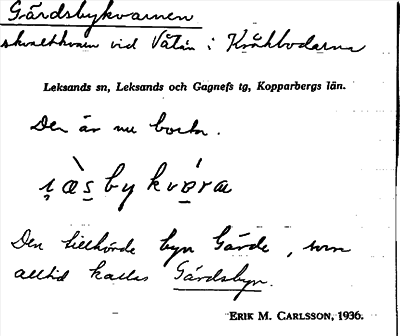 Gärdsbykvarnen
skvaltkvarn vid Vålån i Kråkbodarna
Leksands sn, Leksands och Gagnefs tg, Kopparbergs län.
Den är nu borta.
Den tillhörde byn Gärde, som
alltid kallas Gärdsbyn.
ERIK M. CARLSSON, 1936.